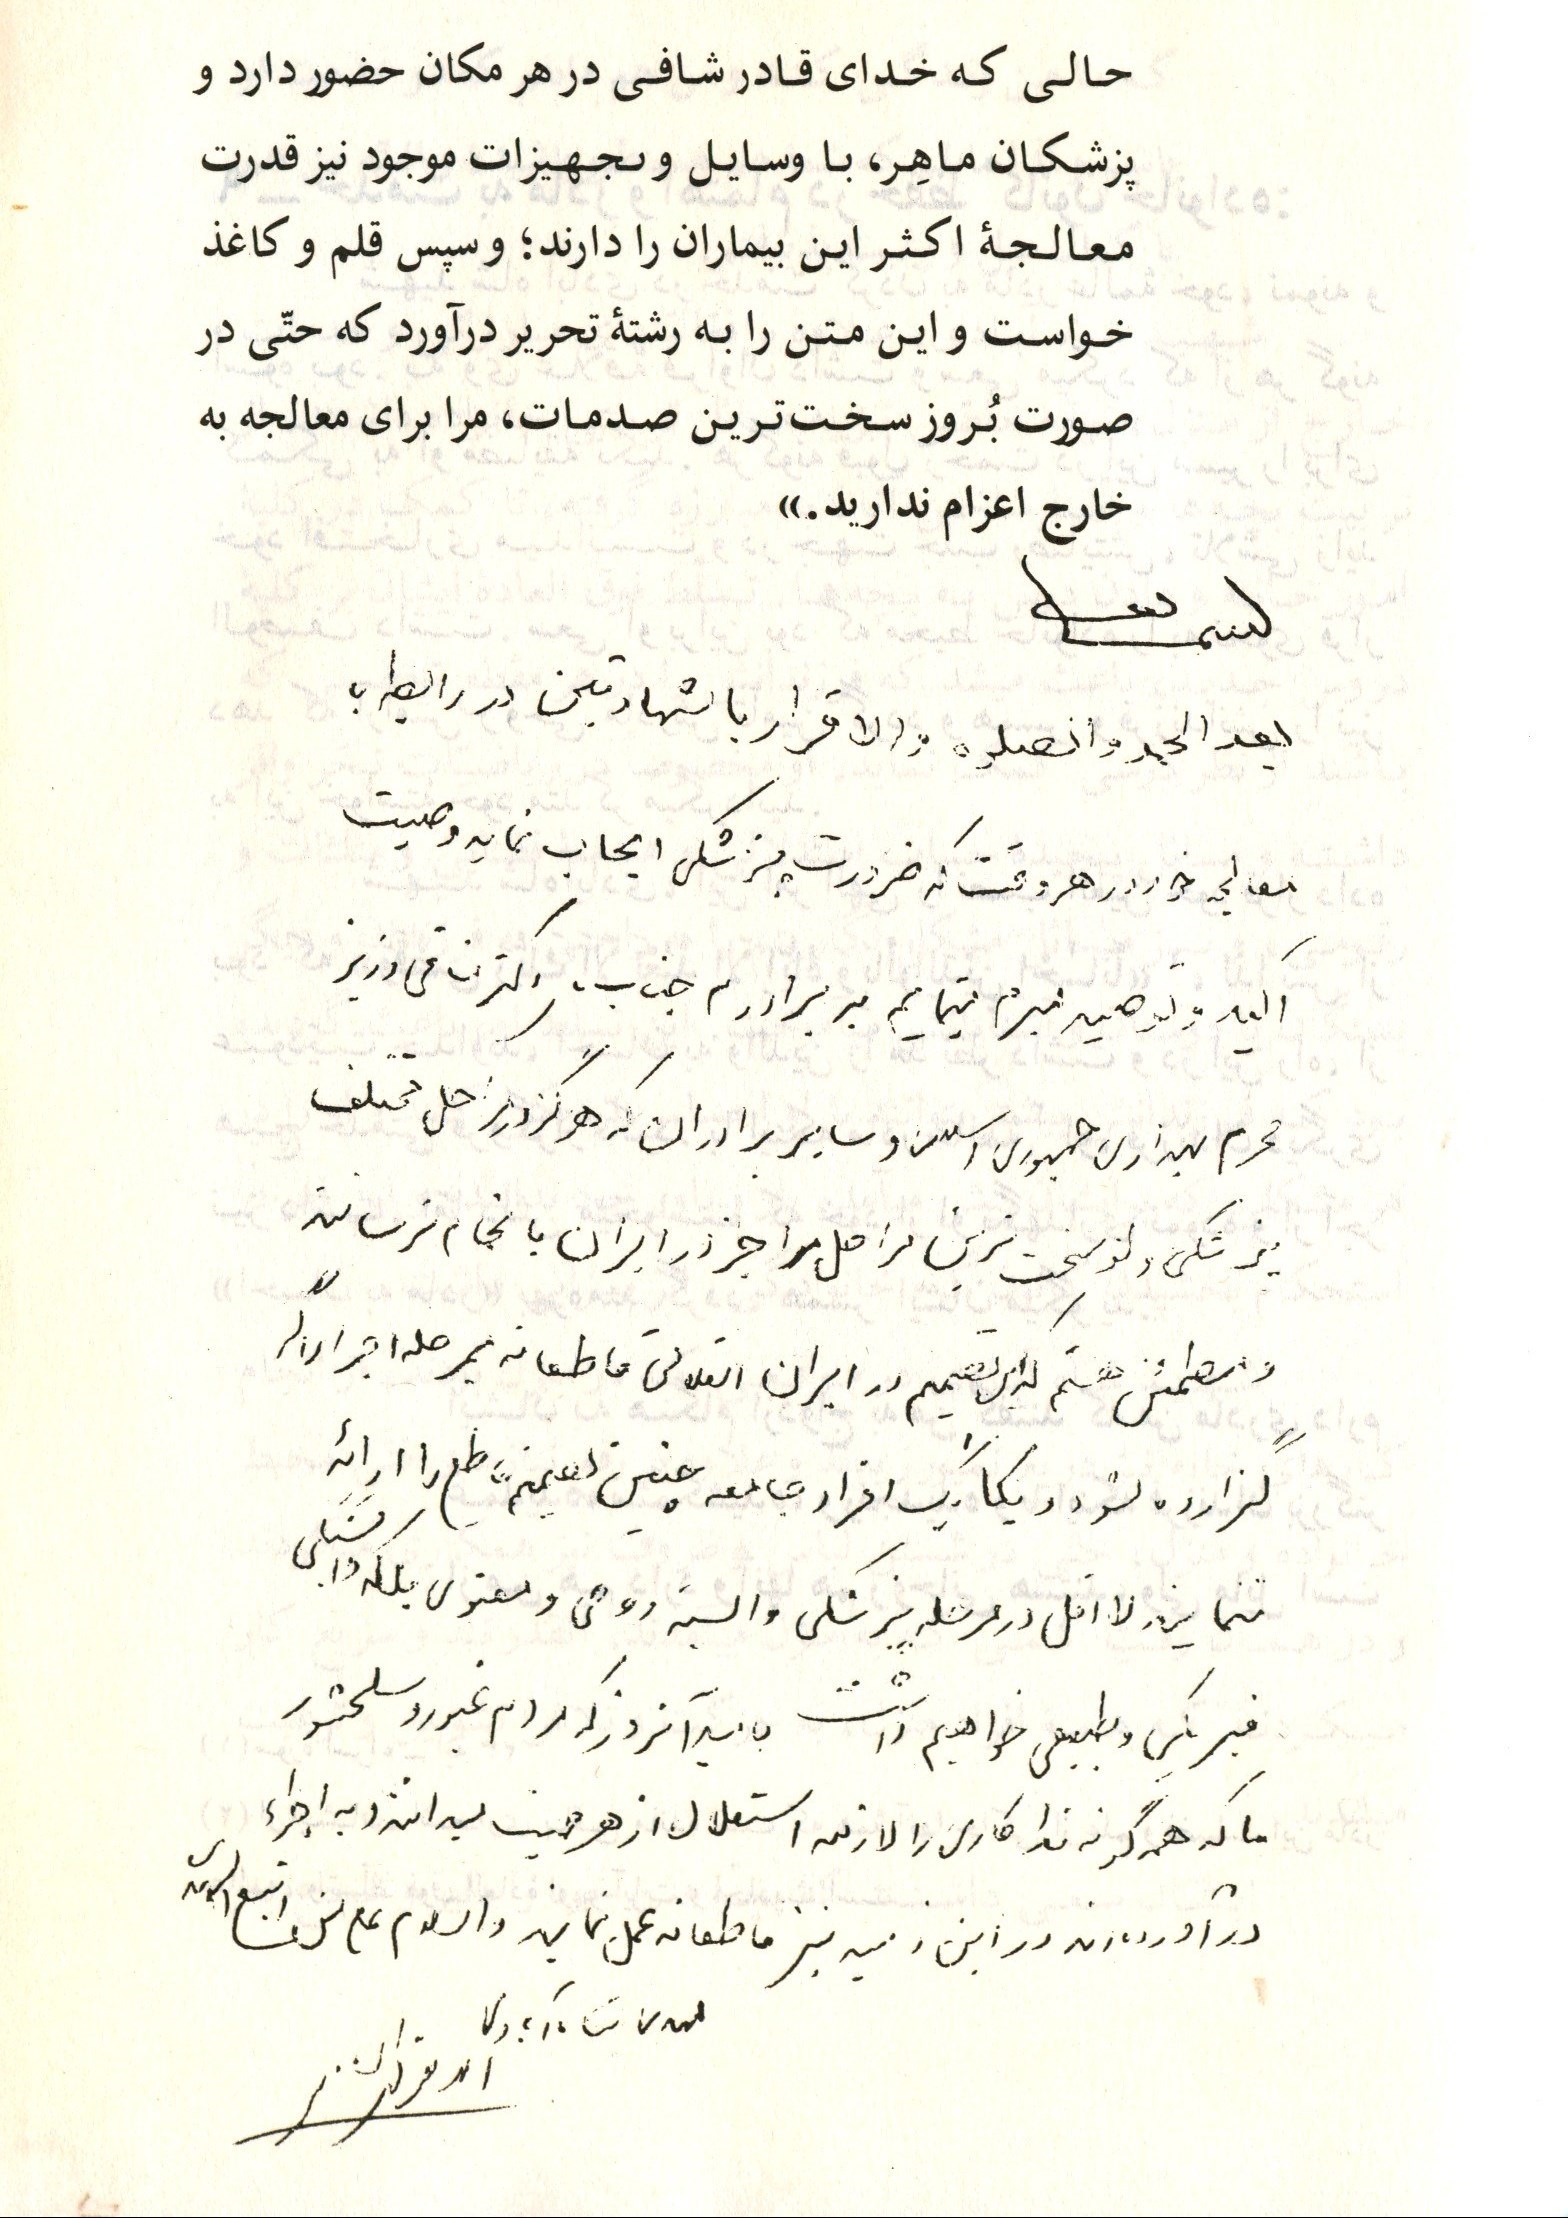 حالی که خدای قادر شافی در هر مکان حضور دارد و
پزشکان ماهِر، با وسایل و تجهیزات موجود نیز قدرت
معالجهٔ اکثر این بیماران را دارند؛ و سپس قلم و کاغذ
خواست و این متن را به رشتهٔ تحریر درآورد که حتّی در
صورت بُروز سخت‌ترین صدمات، مرا برای معالجه به
خارج اعزام ندارید.»
بسمه تعالی
بعد الحمد والصلوه والاقرار بالشهادتین در رابطه با
معالجه خود در هر وقت که ضرورت پزشکی ایجاب نماید وصیت
اکید و توصیه مبرم مینمایم به برادرم جناب دکتر منافی وزیر
محترم بهداری جمهوری اسلامی و سایر برادران که هرگز در مراحل مختلف
پزشکی ولو سخت ترین مراحل مرا جز در ایران بانجام نرسانند
و مطمئن هستم که این تصمیم در ایران انقلابی قاطعانه بمرحله اجرا در
گزارده نشود و یکایک افراد جامعه چنین تصمیم قاطع را ارائه
ننمایند لااقل در مرحله پزشکی وابسته روحی و معنوی بلکه وابستگی
فیزیکی و طبیعی خواهیم داشت بامید آنروز که مردم غیور و سلحشور
ما که همه گونه فداکاری را لازمه استقلال از هر جهت میدانند و به اجراء
درآورده‌اند در این زمینه نیز قاطعانه عمل نمایند والسلام علی من اتبع الهدی
مهدی شاه‌آبادی